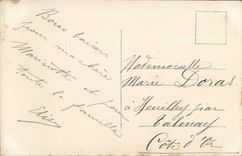 Bons baisers
pour ma chère
Marinette et pour
toute la famille
Elise
Mademoiselle
Marie Doras
à Heuilley par
Talmay
Côte d'Or